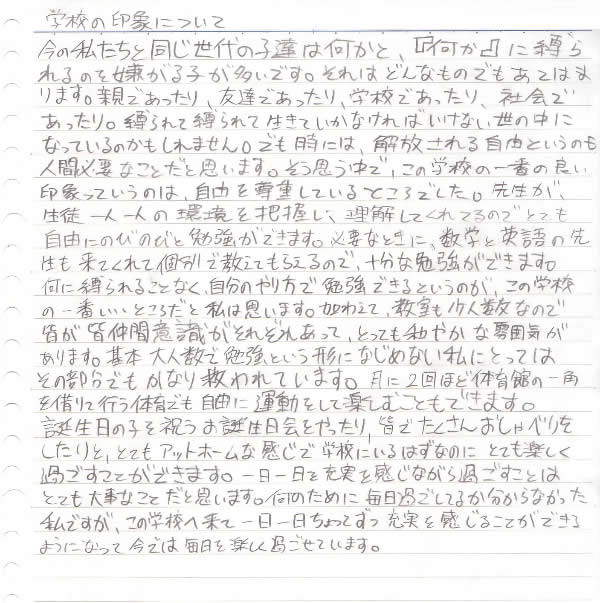 学校の印象について
今の私たちと同じ世代の子達は何かと、『何か』に縛ら
れるのを嫌がる子が多いです。それはどんなものでもあてはま
ります。親であったり、友達であったり、学校であったり、社会で
あったり。縛られて縛られて生きていかなければいけない世の中に
なっているのかもしれません。でも時には、解放される自由というのも
人間必要なことだと思います。そう思う中で、この学校の一番の良い
印象っていうのは、自由を尊重しているところでした。先生が、
生徒一人一人の環境を把握し、理解してくれてるのでとても
自由にのびのびと勉強ができます。必要なときに、数学と英語の先
生も来てくれて個別で教えてもらえるので、十分な勉強ができます。
何に縛られることなく、自分のやり方で勉強できるというのが、この学校
の一番いいところだと私は思います。加わえて、教室も少人数なので
皆が皆仲間意識がそれぞれあって、とっても和やかな雰囲気が
あります。基本大人数で勉強という形になじめない私にとっては
その部分でもかなり救われています。月に2回ほど体育館の一角
を借りて行う体育でも自由に運動をして楽しむこともできます。
誕生日の子を祝うお誕生日会をやったり、皆でたくさんおしゃべりを
したりと、とてもアットホームな感じで学校にいるはずなのにとても楽しく
過ごすことができます。一日一日を充実を感じながら過ごすことは
とても大事なことだと思います。何のために毎日過ごしてるか分からなかった
私ですが、この学校へ来て一日一日ちょってずつ充実を感じることができる
ようになって今では毎日を楽しく過ごせています。